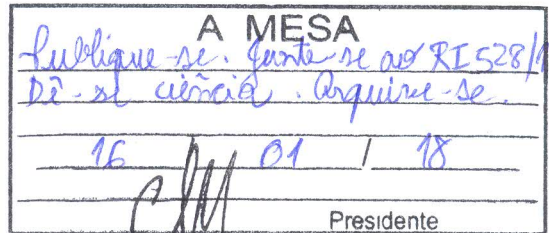 A MESA
Publique-se. Junte-se ao RI 528/1
Dê-se ciência. Arquive-se.
16 / 01 / 18
Presidente